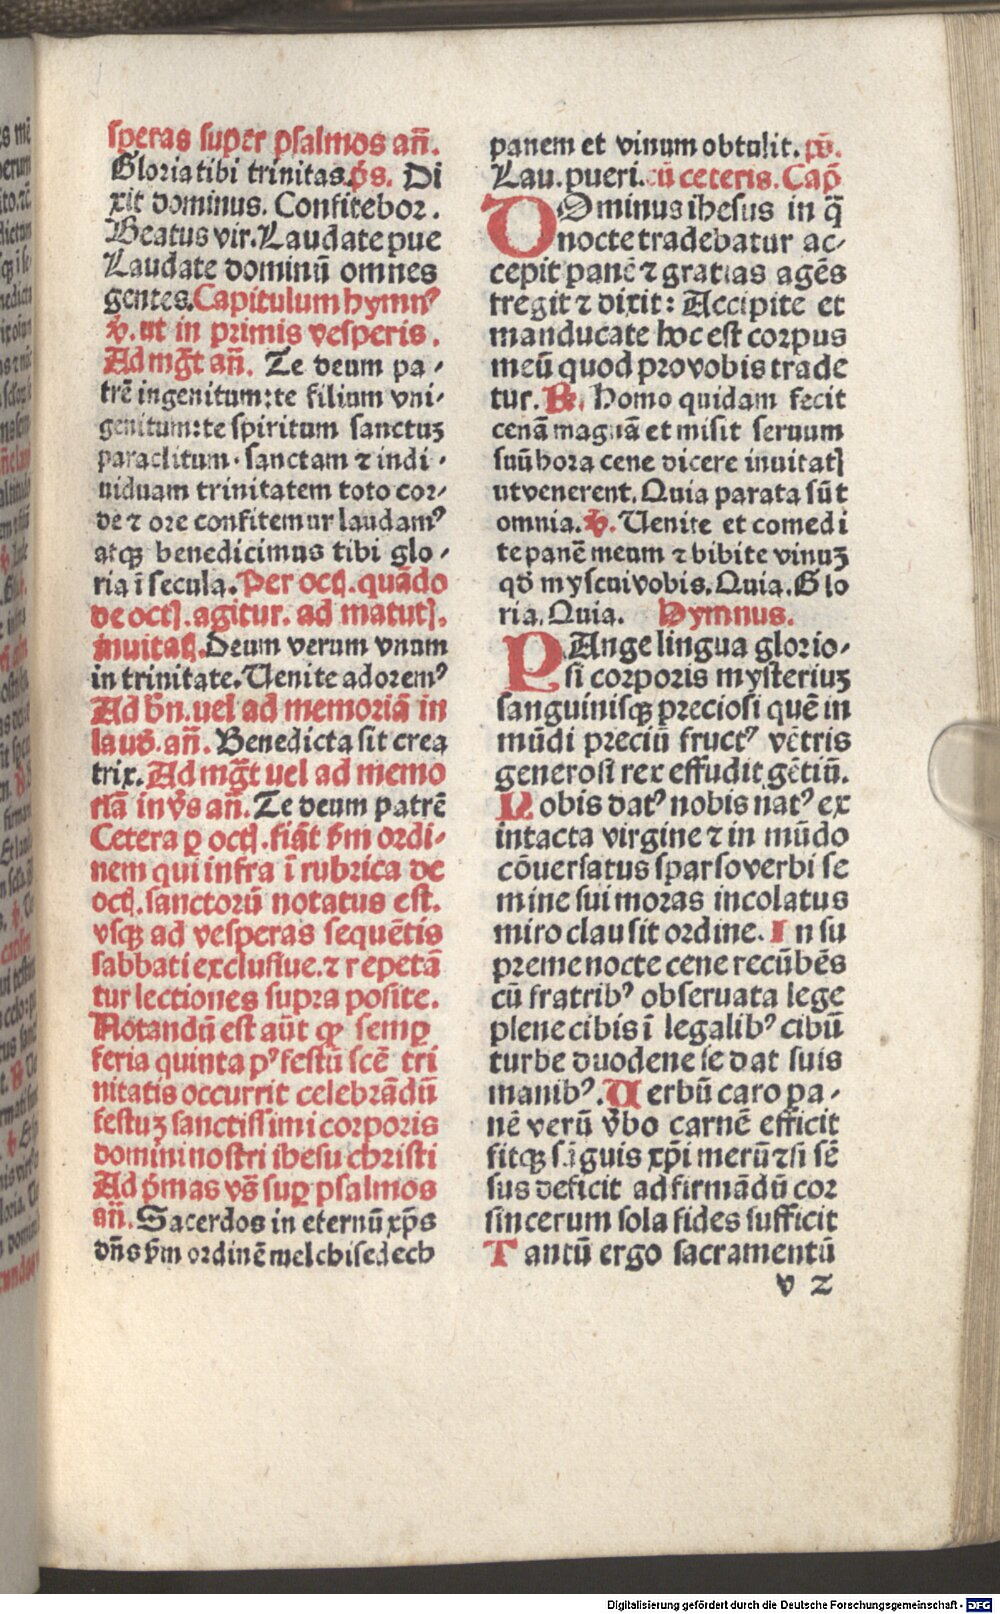 speras super psalmos an̄.
Gloria tibi trinitas. p̄s. Di
xit dominus. Confitebor.
Beatus vir. Laudate pue
Laudate dominū omnes
gentes. Capitulum hymnꝰ
v̄. ut in primis vesperis.
Ad mḡt an̄. Te deum pa-
trē ingenitum: te filium vni-
genitum: te spiritum sanctuꝫ
paraclitum. sanctam ⁊ indi-
uiduam trinitatem toto cor-
de ⁊ ore confitemur laudamꝰ
atqꝫ benedicimus tibi glo-
ria ī secula. Per octꝭ. quādo
de octꝭ. agitur. ad matutꝭ.
inuitaꝭ. Deum verum vnum
in trinitate. Uenite adoremꝰ
Ad bn̄. uel ad memoriā in
laud. an̄. Benedicta sit crea
trix. Ad mḡt uel ad memo
riā in vs̄ an̄. Te deum patrē
Cetera ꝑ octꝭ. fiāt ẜm ordi-
nem qui infra ī rubrica de
octꝭ. sanctorū notatus est.
vsqꝫ ad vesperas sequētis
sabbati exclusiue. ⁊ repetā
tur lectiones supra posite.
Notandū est aūt ꝙ semꝑ
feria quinta pꝰ festū scē tri
nitatis occurrit celebrādū
festuꝫ sanctissimi corporis
domini nostri ihesu christi
Ad p̄mas vs̄ suꝑ psalmos
an̄. Sacerdos in eternū xp̄s
dn̄s ẜm ordinē melchisedech
panem et vinum obtulit. ps̄.
Lau. pueri. cū ceteris. Cap̄
DOminus ihesus in q̄
nocte tradebatur ac-
cepit panē ⁊ gratias agēs
fregit ⁊ dixit: Accipite et
manducate hoc est corpus
meū quod pro vobis trade
tur. ℞. Homo quidam fecit
cenā magnā et misit seruum
suū hora cene dicere inuitatꝭ
ut venerent. Quia parata sūt
omnia. v̄. Uenite et comedi
te panē meum ⁊ bibite vinuꝫ
qd̄ myscui vobis. Quia. Glo
ria. Quia. Hymnus.
PAnge lingua glorio-
si corporis mysteriuꝫ
sanguinisqꝫ preciosi quē in
mūdi preciū fructꝰ vētris
generosi rex effudit gētiū.
Nobis datꝰ nobis natꝰ ex
intacta virgine ⁊ in mūdo
cōuersatus sparso verbi se
mine sui moras incolatus
miro clausit ordine. In su
preme nocte cene recūbēs
cū fratribꝰ obseruata lege
plene cibis ī legalibꝰ cibū
turbe duodene se dat suis
manibꝰ. Uerbū caro pa-
nē verū v̄bo carnē efficit
fitqꝫ sāguis xp̄i merū ⁊ si sē
sus deficit ad firmādū cor
sincerum sola fides sufficit
Tantū ergo sacramentū
v 2
Digitalisierung gefördert durch die Deutsche Forschungsgemeinschaft - DFG